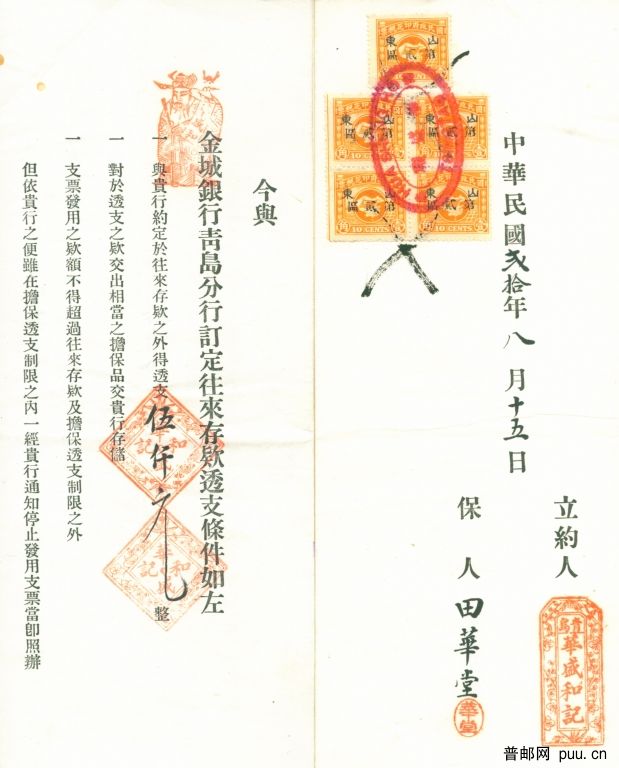 今與
金城銀行靑島分行訂定往來存欵透支條件如左
一 與貴行約定於往來存欵之外得透支伍仟元整
一 對於透支之欵交出相當之擔保品交貴行存儲
一 支票發用之欵額不得超過往來存欵及擔保透支制限之外
但依貴行之便雖在擔保透支制限之內一經貴行通知停止發用支票當卽照辦
華盛和記
華盛和記
中華民國弍拾年八月十五日
立約人
靑島
華盛和記
保人 田華堂
華堂
山東
第貳區
山東
第貳區
山東
第貳區
山東
第貳區
山東
第貳區
10 CENTS
10 CENTS
普邮网 puu.cn